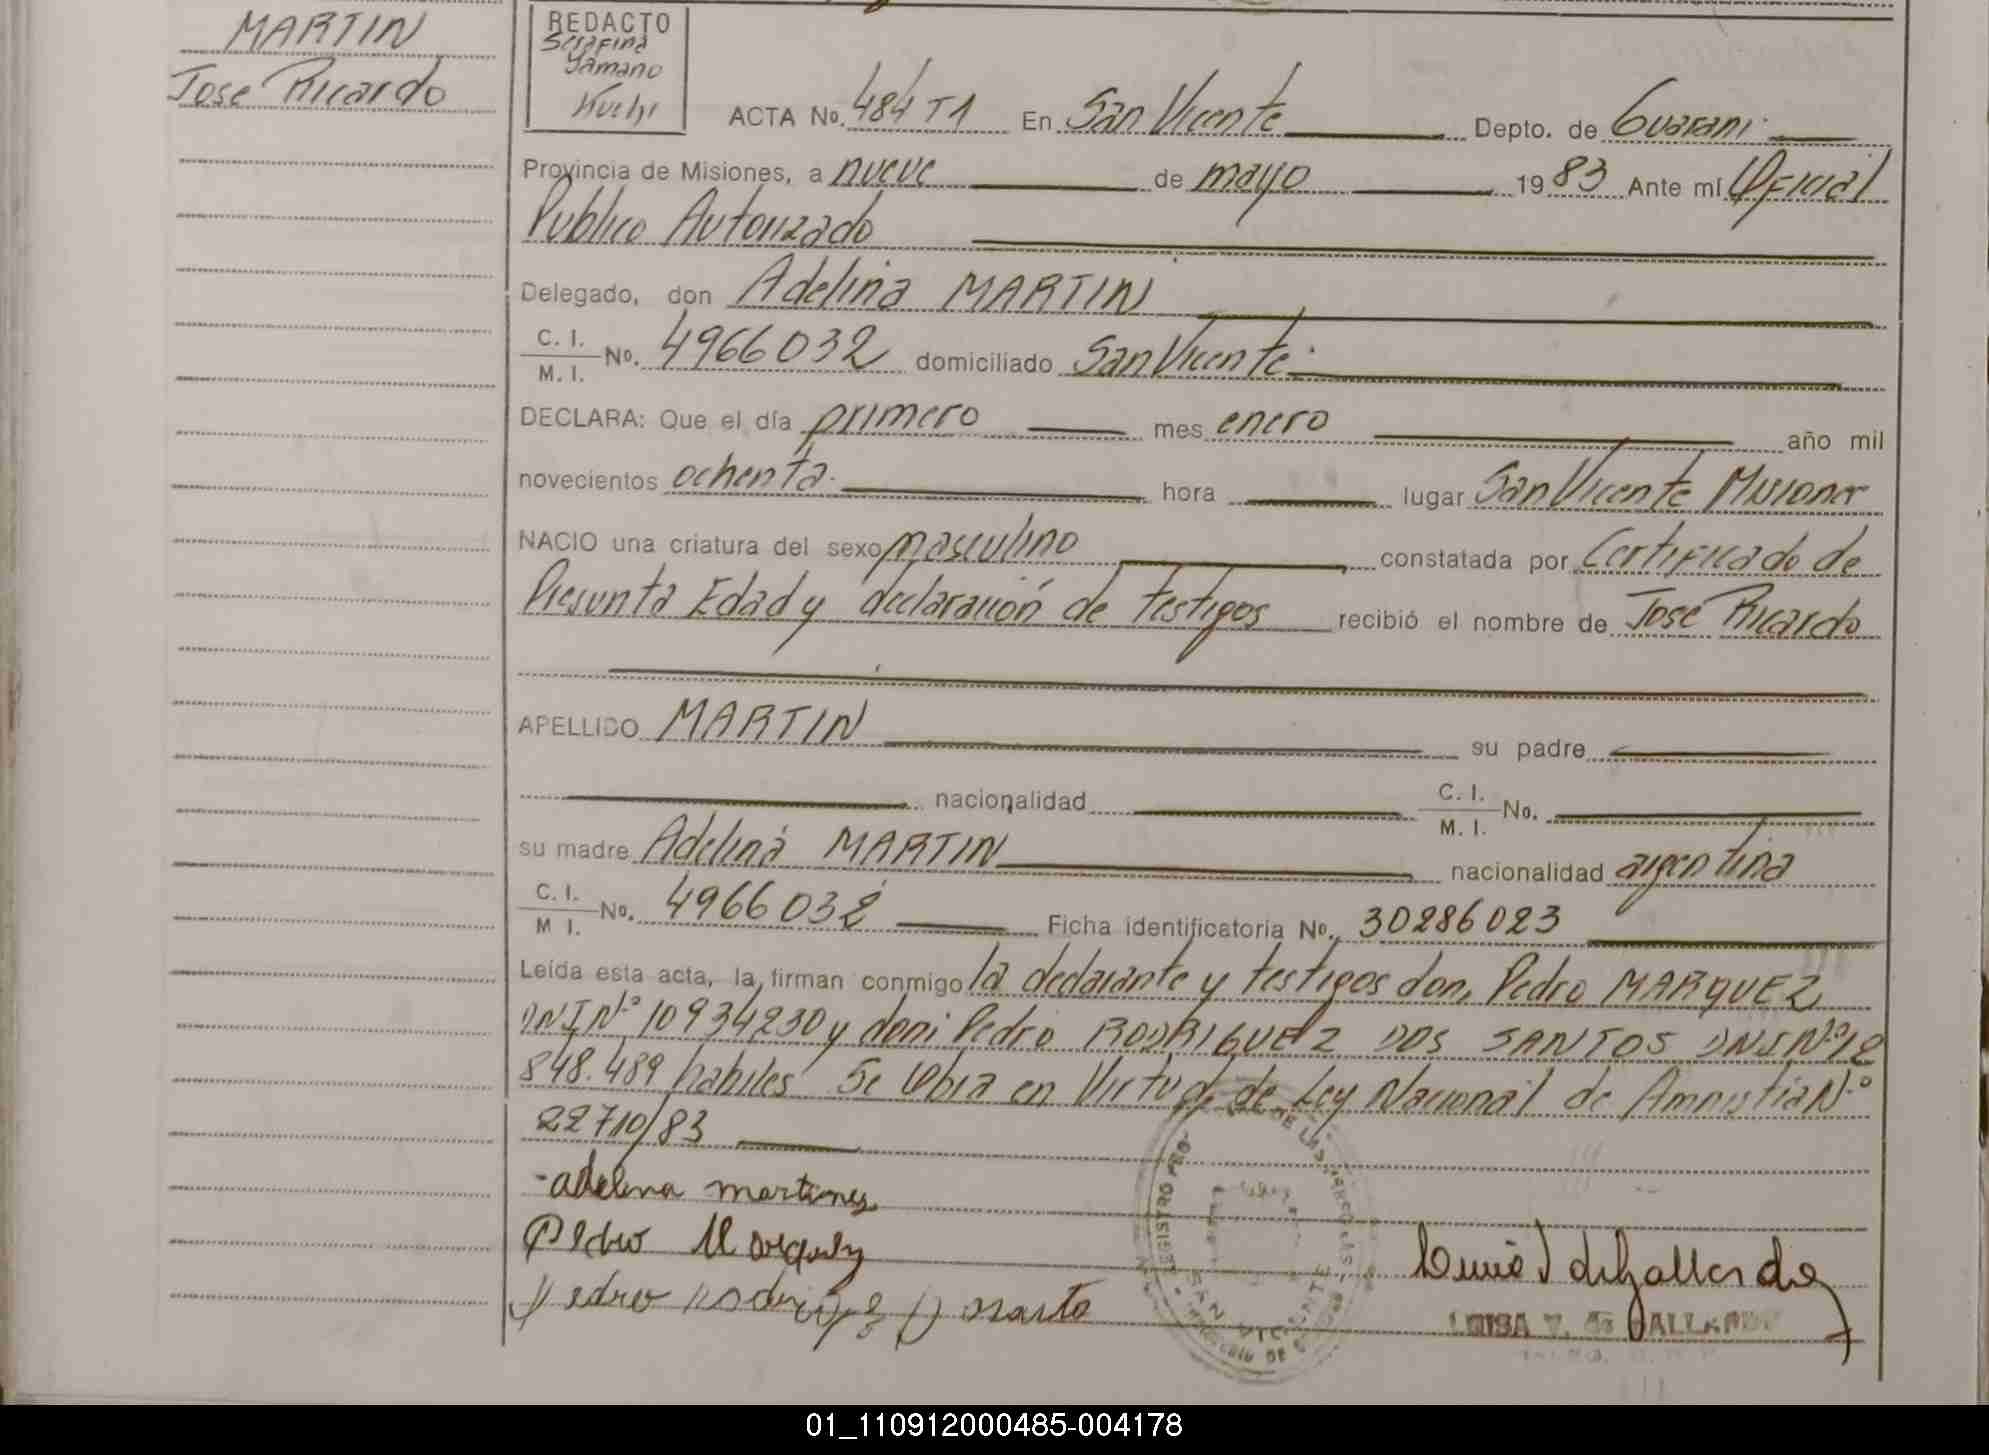 MARTIN
Jose Ricardo
REDACTO
Serafina
Yamano
Kuchi
ACTA No. 484 T1 En San Vicente Depto. de Guarani
Provincia de Misiones, a nueve de mayo 1983 Ante mí Oficial
Publico Autorizado
Delegado, don Adelina MARTIN
C. I.
M. I. No. 4966032 domiciliado San Vicente
DECLARA: Que el día primero mes enero año mil
novecientos ochenta hora lugar San Vicente Misiones
NACIO una criatura del sexo masculino constatada por Certificado de
Presunta Edad y declaración de testigos recibió el nombre de José Ricardo
APELLIDO MARTIN su padre
nacionalidad C. I.
M. I. No.
su madre Adelina MARTIN nacionalidad argentina
C. I.
M I. No. 4966032 Ficha identificatoria No. 30286023
Leída esta acta, la firman conmigo la declarante y testigos don, Pedro MARQUEZ
DNI Nº 10934230 y don Pedro RODRIGUEZ DOS SANTOS DNI Nº 12
848.489 habiles Se Obra en Virtud de Ley Nacional de Amnistia Nº
22710/83
-adelina martines
Pedro Marquez
Pedro Rodriguez D
SAN VICENTE
LUISA V. de GALLARDO
01_110912000485-004178